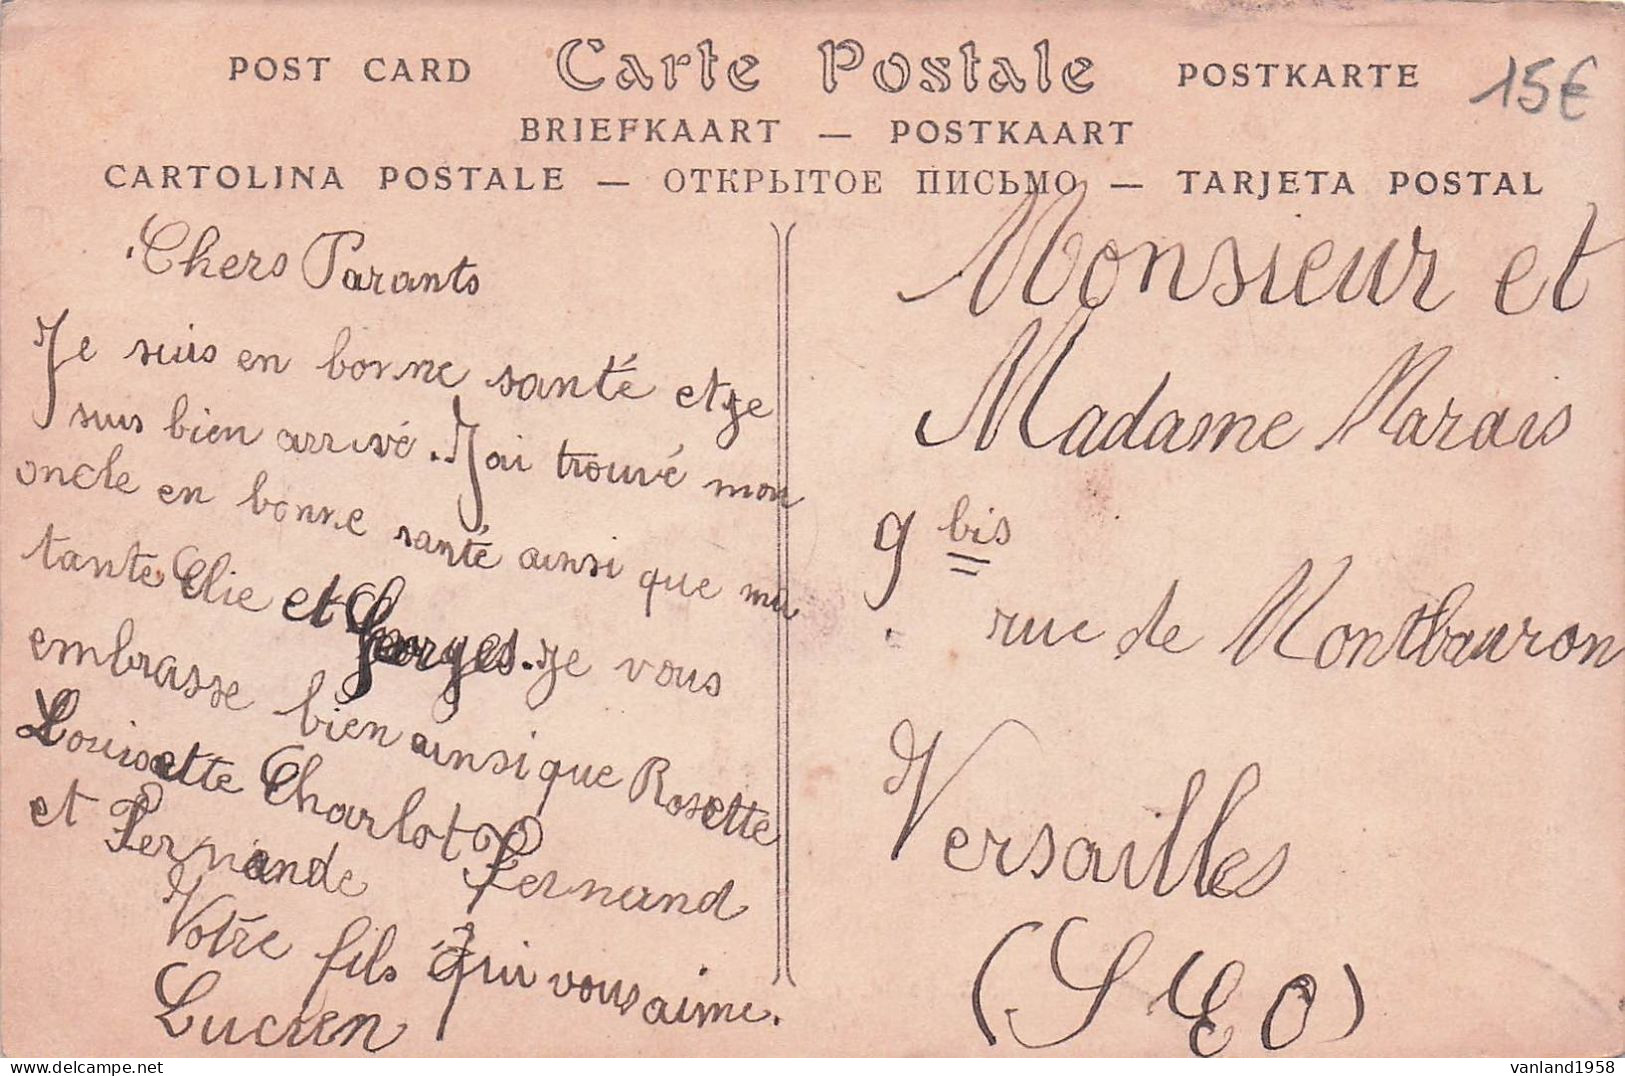 POST CARD Carte Postale POSTKARTE 15€
BRIEFKAART — POSTKAART
CARTOLINA POSTALE — ОТКРЫТОЕ ПИСЬМО — TARJETA POSTAL
Chers Parants
Je suis en bonne santé et je
suis bien arrivé. J'ai trouvé mon
oncle en bonne santé ainsi que ma
tante Elie et Georges. Je vous
embrasse bien ainsi que Rosette
Louisette Charlot Fernand
et Fernande
Votre fils qui vous aime.
Lucien
Monsieur et
Madame Marais
9 bis
rue de Montbauron
Versailles
(S E O)
vanland1958